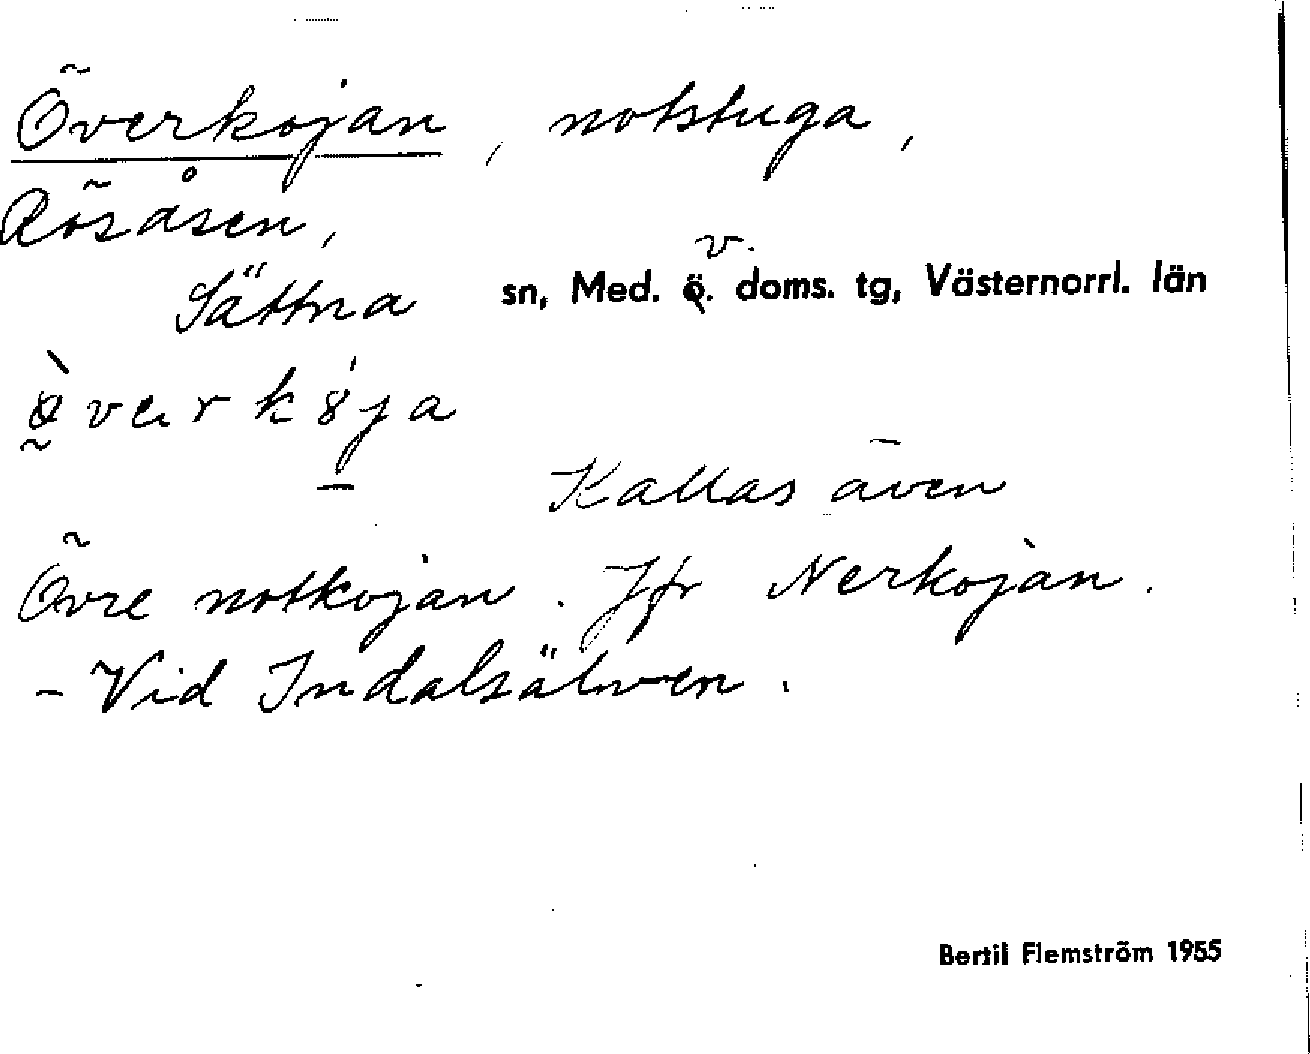 Överkojan, notstuga,
Rösåsen,
Sättna sn, Med. v. doms. tg, Västernorrl. län
Kallas även
Övre notkojan. Jfr Nerkojan.
- Vid Indalsälven.
Bertil Flemström 1955